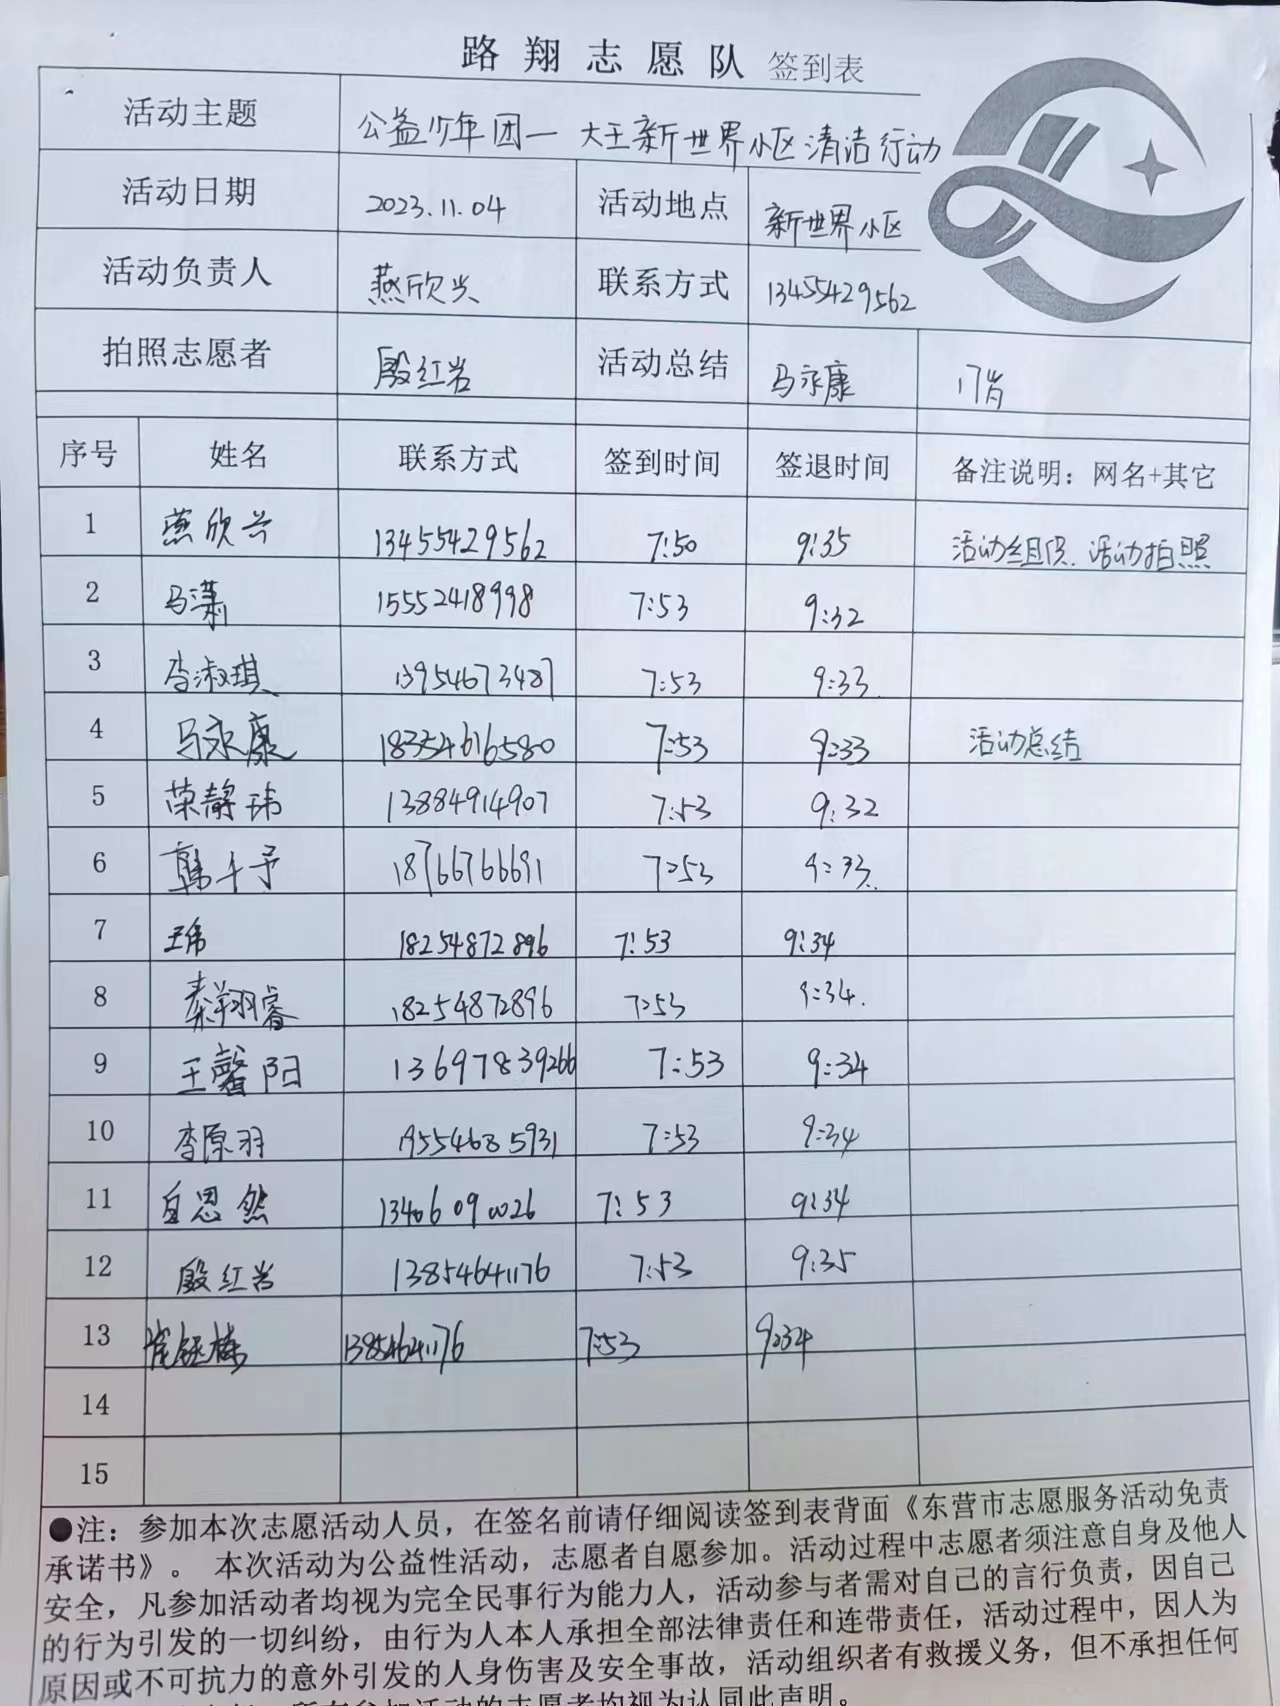 路翔志愿队 签到表
活动主题 公益少年团一 大王新世界小区清洁行动
活动日期 2023.11.04 活动地点 新世界小区
活动负责人 燕欣兴 联系方式 13455429562
拍照志愿者 殷红岩 活动总结 马永康 17岁
序号 姓名 联系方式 签到时间 签退时间 备注说明：网名+其它
1 燕欣兴 13455429562 7:50 9:35 活动组织、活动拍照
2 马潇 15552418998 7:53 9:32
3 李淑琪 13954673487 7:53 9:33
4 马永康 18354616580 7:53 9:33 活动总结
5 荣静玮 13884914907 7:53 9:32
6 韩千予 18766766691 7:53 9:33
7 王伟 18254872896 7:53 9:34
8 秦翔睿 18254872896 7:53 9:34
9 王馨阳 13697839266 7:53 9:34
10 李原羽 19554685931 7:53 9:34
11 思然 13406090026 7:53 9:34
12 殷红岩 13854641176 7:53 9:35
13 13854641176 7:53 9:34
14
15
●注：参加本次志愿活动人员，在签名前请仔细阅读签到表背面《东营市志愿服务活动免责
承诺书》。 本次活动为公益性活动，志愿者自愿参加。活动过程中志愿者须注意自身及他人
安全，凡参加活动者均视为完全民事行为能力人，活动参与者需对自己的言行负责，因自己
的行为引发的一切纠纷，由行为人本人承担全部法律责任和连带责任，活动过程中，因人为
原因或不可抗力的意外引发的人身伤害及安全事故，活动组织者有救援义务，但不承担任何
所有参加活动的志愿者均视为认同此声明。